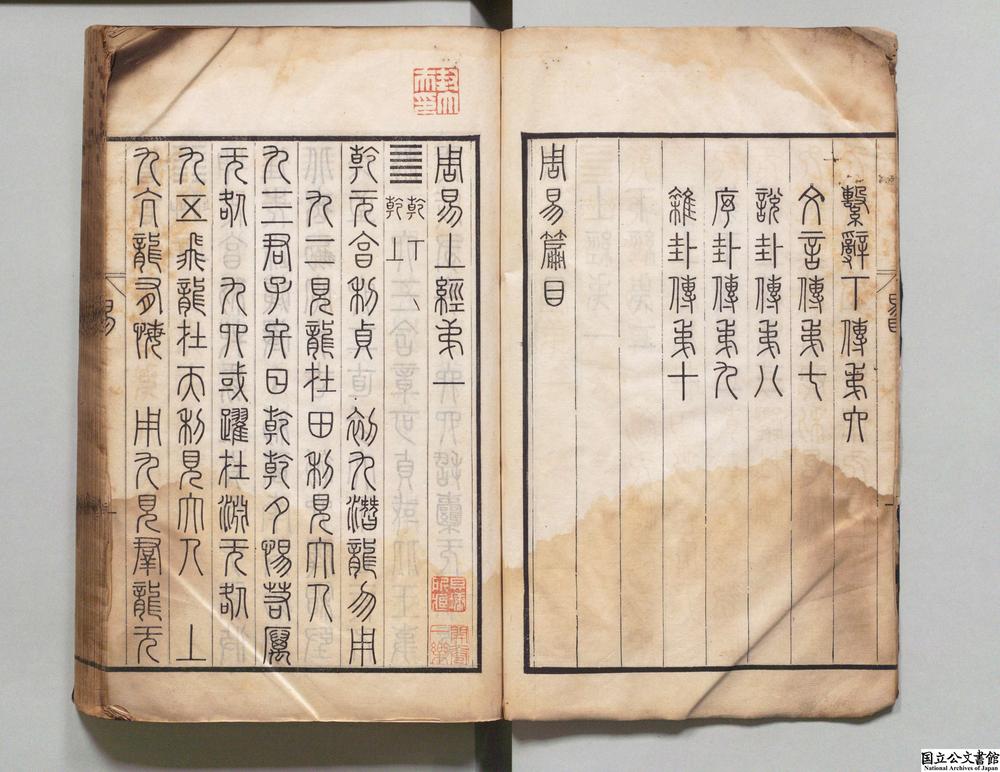 繫辭下傳弟六
文言傳弟七
說卦傳弟八
序卦傳弟九
雜卦傳弟十
周易篇目
周易上經弟一
䷀ 乾下 乾上
乾元亨利貞 初九潛龍勿用
九二見龍在田利見大人
九三君子終日乾乾夕惕若厲
无咎 九四或躍在淵无咎
九五飛龍在天利見大人 上
九亢龍有悔 用九見羣龍无
国立公文書館
National Archives of Japan